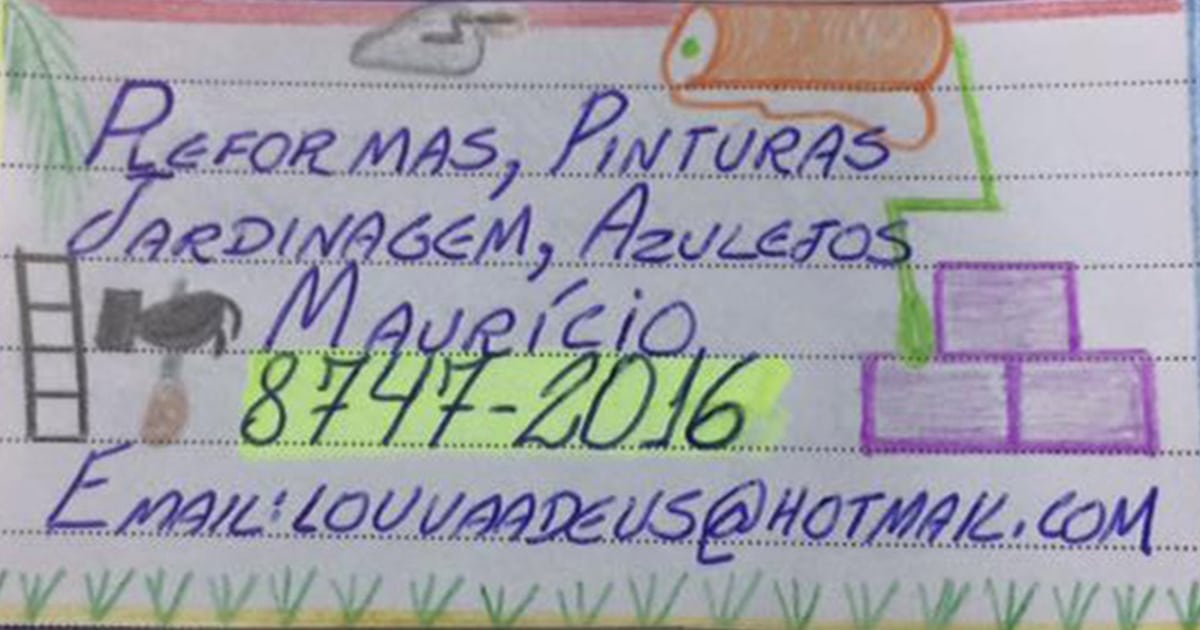 REFORMAS, PINTURAS
JARDINAGEM, AZULEJOS
MAURÍCIO
8747-2016
EMAIL:LOUVAADEUS@HOTMAIL.COM